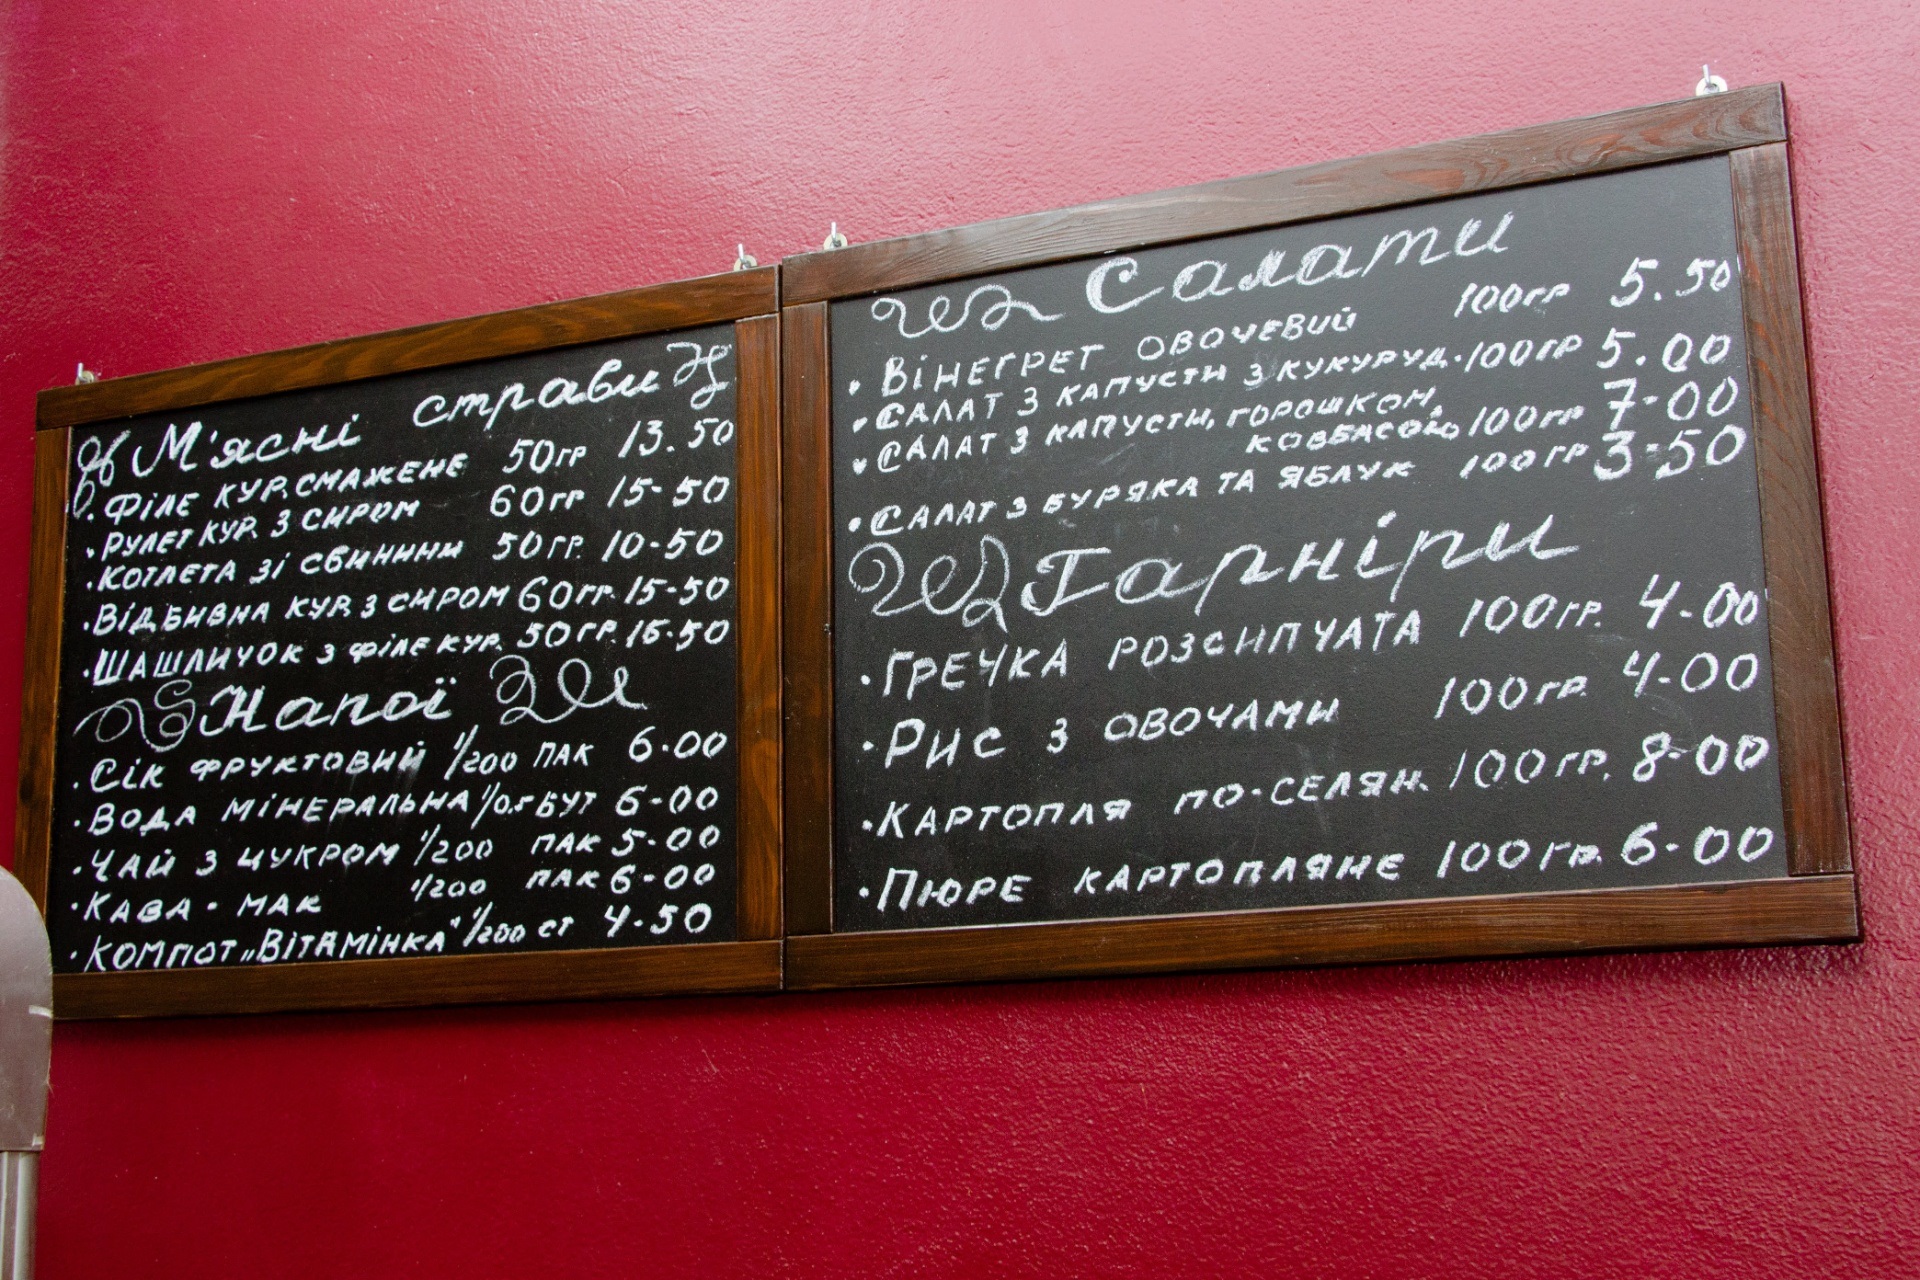 М'ясні страви
• ФІЛЕ КУР. СМАЖЕНЕ 50гр 13.50
• РУЛЕТ КУР. З СИРОМ 60гр 15-50
• КОТЛЕТА ЗІ СВИНИНИ 50гр. 10-50
• ВІДБИВНА КУР. З СИРОМ 60гр. 15-50
• ШАШЛИЧОК З ФІЛЕ КУР. 50гр. 15.50
Напої
• СІК ФРУКТОВИЙ 1/200 ПАК 6.00
• ВОДА МІНЕРАЛЬНА 1/0.5 БУТ 6-00
• ЧАЙ З ЦУКРОМ 1/200 ПАК 5-00
• КАВА - МАК 1/200 ПАК 6-00
• КОМПОТ „ВІТАМІНКА" 1/200 СТ 4.50
Салати
• ВІНЕГРЕТ ОВОЧЕВИЙ 100гр 5.50
• САЛАТ З КАПУСТИ З КУКУРУД. 100гр 5.00
• САЛАТ З КАПУСТИ, ГОРОШКОМ,
КОВБАСОЮ 100гр 7-00
• САЛАТ З БУРЯКА ТА ЯБЛУК 100гр 3-50
Гарніри
• ГРЕЧКА РОЗСИПЧАТА 100гр. 4-00
• РИС З ОВОЧАМИ 100гр. 4-00
• КАРТОПЛЯ ПО-СЕЛЯН. 100гр. 8-00
• ПЮРЕ КАРТОПЛЯНЕ 100гр. 6-00